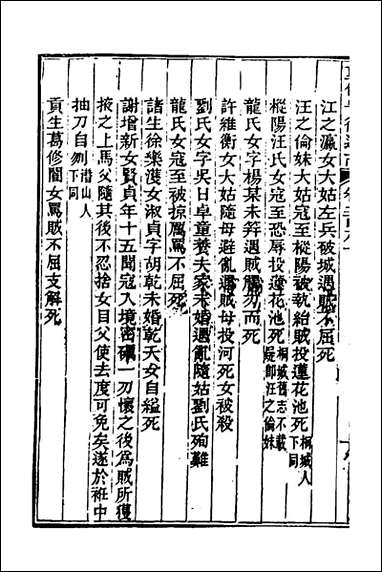 江之瀛女大姑左兵破城遇賊不屈死
汪之倫妹大姑寇至樅陽被執紿賊投蓮花池死桐城人下同
樅陽汪氏女寇至恐辱投蓮花池死桐城舊志不載疑卽汪之倫妹
龍氏女字楊某未筓遇賊觸刃而死
許維衡女大姑隨母避亂遇賊母投河死女被殺
劉氏女字吳日阜童養夫家未婚遇亂隨姑劉氏殉難
龍氏女寇至被掠厲罵不屈死
諸生徐樂漢女淑貞字胡乾未婚乾夭女自縊死
謝增新女賢貞年十五聞寇入境密礪一刃懷之後爲賊所獲
掖之上馬父隨其後不忍捨女目父使去度可免矣遂於袵中
抽刀自刎潛山人下同
貢生葛修閶女罵賊不屈支解死